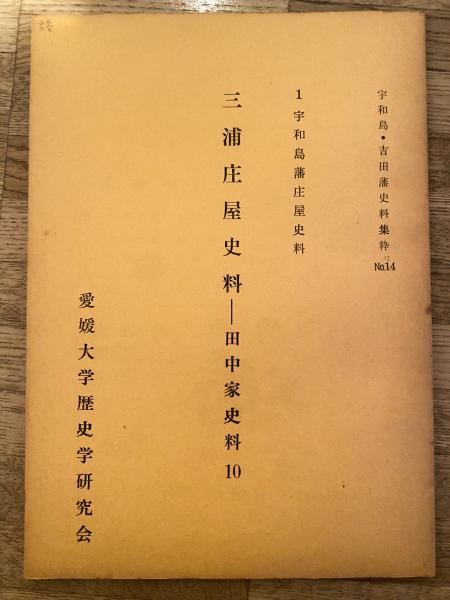 宇和島・吉田藩史料集粋 No.14
1 宇和島藩庄屋史料
三浦庄屋史料―田中家史料10
愛媛大学歴史学研究会